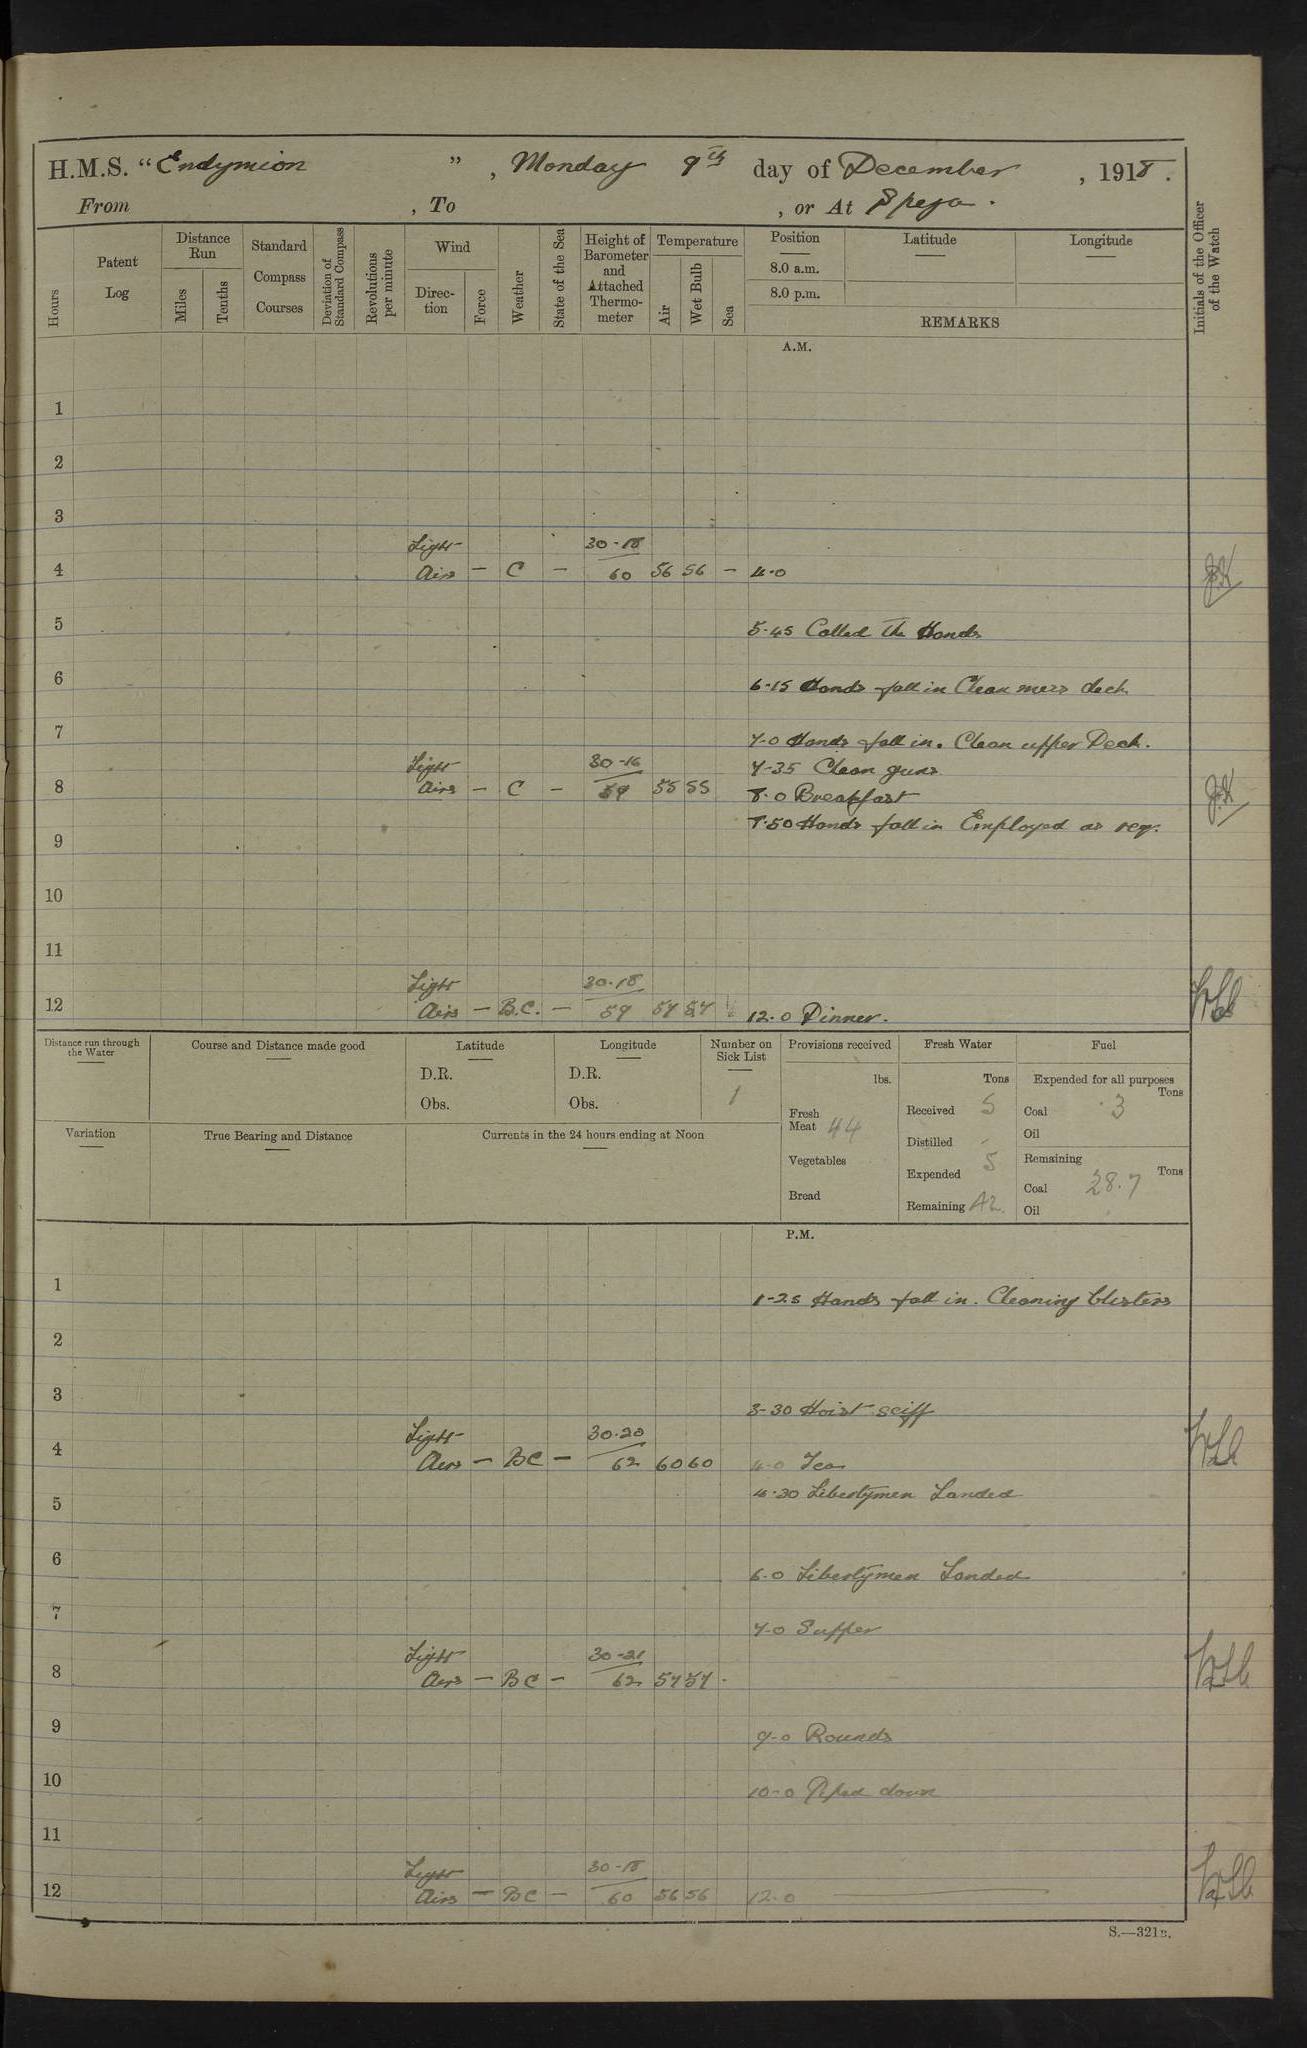 H.M.S. "Endymion", Monday 9th day of December, 1918.
From , To , or At Speza.
Hours
Patent Log
Distance Run
Miles
Tenths
Standard Compass Courses
Deviation of Standard Compass
Revolutions per minute
Wind
Direction
Force
Weather
State of the Sea
Height of Barometer and Attached Thermometer
Temperature
Air
Wet Bulb
Sea
Position
8.0 a.m.
8.0 p.m.
Latitude
Longitude
REMARKS
Initials of the Officer of the Watch
A.M.
1
2
3
Light 30-18
4 Airs - C - 60 56 56 - 4-0
5 5-45 Called the Hands
6 6-15 Hands fall in Clean mess deck
7 7-0 Hands fall in. Clean upper Deck.
Light 30-16 7-35 Clean guns
8 Airs - C - 59 55 55 8-0 Breakfast
9 8-50 Hands fall in Employed as req.
10
11
Light 30.18
12 Airs - B.C. - 59 57 57 12-0 Dinner.
Distance run through the Water
Course and Distance made good
Latitude
D.R.
Obs.
Longitude
D.R.
Obs.
Number on Sick List
1
Provisions received
lbs.
Fresh Meat 44
Vegetables
Bread
Fresh Water
Tons
Received 5
Distilled -
Expended 5
Remaining 42
Fuel
Expended for all purposes
Tons
Coal 3
Oil
Remaining
Tons
Coal 28.7
Oil
Variation
True Bearing and Distance
Currents in the 24 hours ending at Noon
P.M.
1 1-25 Hands fall in. Cleaning blisters
2
3 3-30 Hoist sciff
Light 30.20
4 Airs - BC - 62 60 60 4-0 Tea
5 4-30 Libertymen Landed
6 6-0 Libertymen Landed
7 7-0 Supper
Light 30-21
8 Airs - BC - 62 57 57
9 9-0 Rounds
10 10-0 Piped down
11
Light 30-18
12 Airs - BC - 60 56 56 12-0
S.—321B.